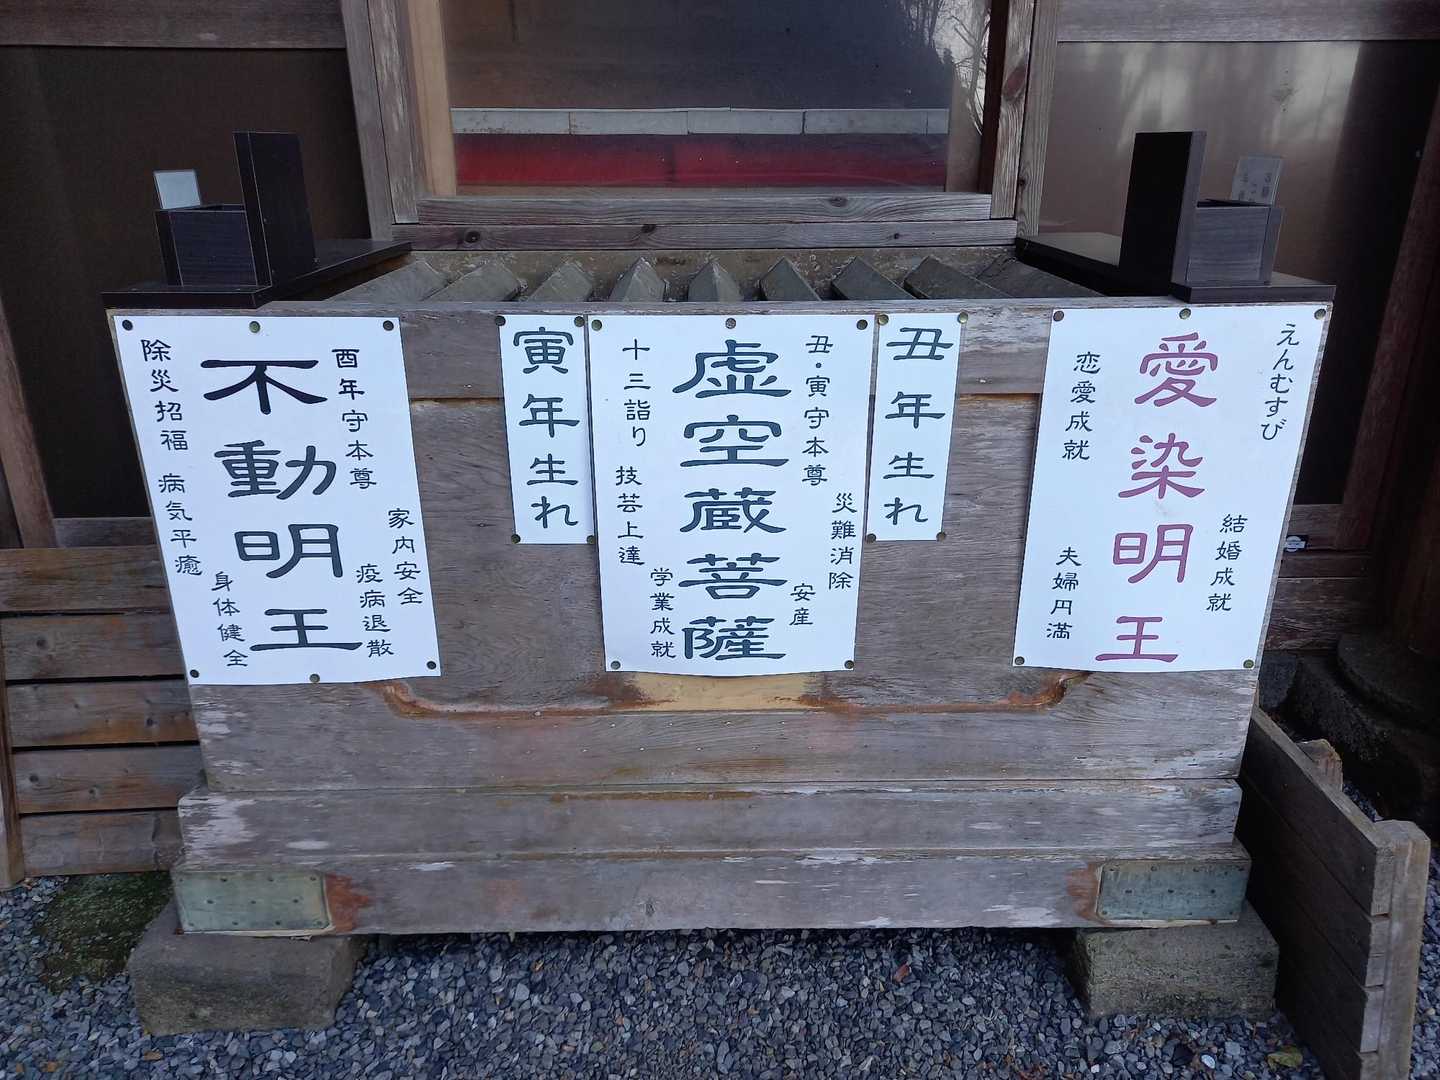 えんむすび
愛染明王
恋愛成就
結婚成就
夫婦円満
丑年生れ
丑・寅守本尊
災難消除
安産
虚空蔵菩薩
十三詣り
技芸上達
学業成就
寅年生れ
酉年守本尊
家内安全
疫病退散
不動明王
除災招福
病気平癒
身体健全